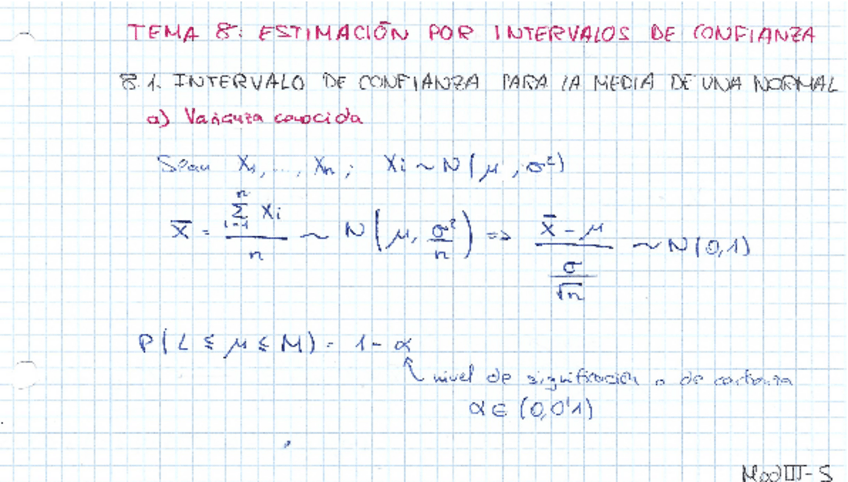 TEMA 8: ESTIMACIÓN POR INTERVALOS DE CONFIANZA
8.1. INTERVALO DE CONFIANZA PARA LA MEDIA DE UNA NORMAL
a) Varianza conocida
Sean X₁, ..., Xₙ ; Xi ~ N(μ, σ²)
x̄ = (∑ᵢ₌₁ⁿ Xi)/n ~ N(μ, σ²/n) => (x̄ - μ)/(σ/√n) ~ N(0,1)
P(L ≤ μ ≤ M) = 1 - α
nivel de significación o de confianza
α ∈ (0,0'1)
ModIII-S